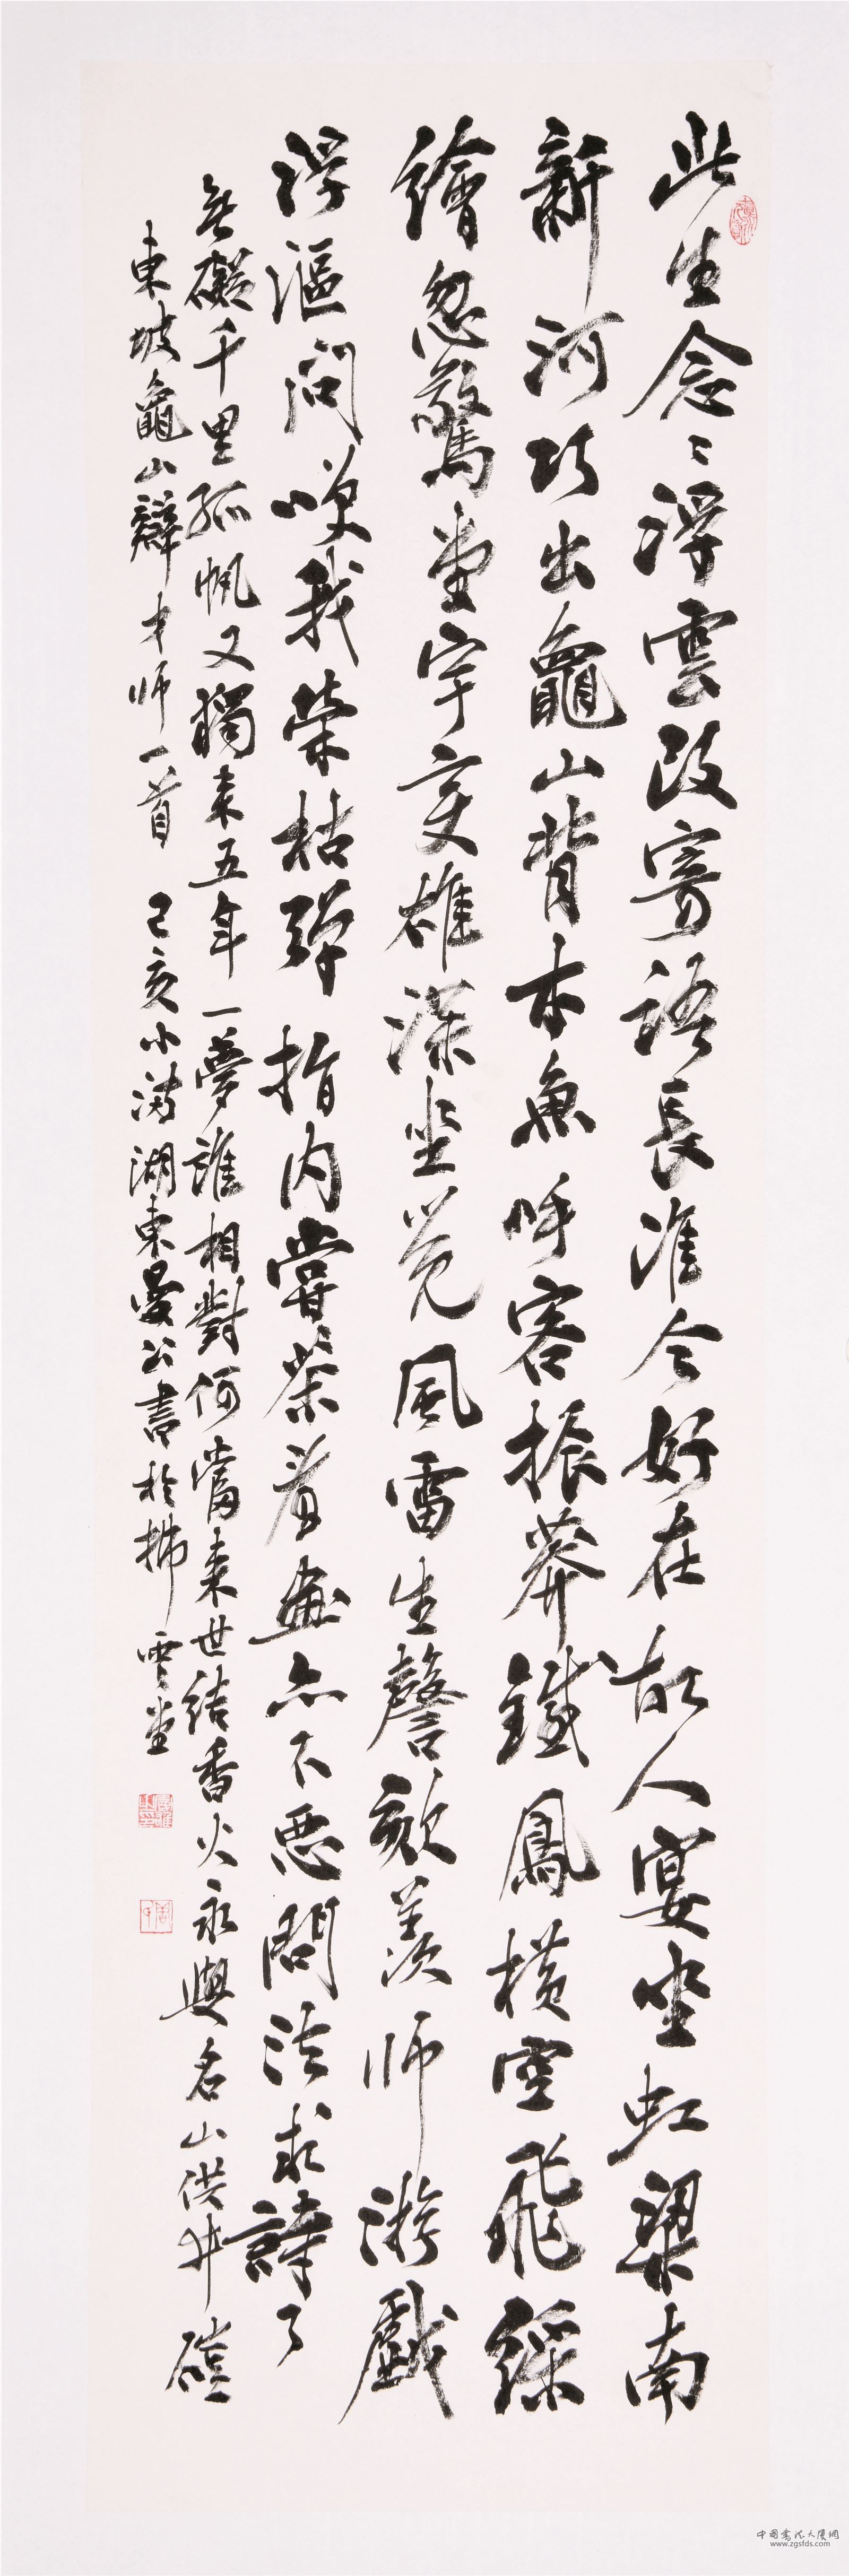 此生念念浮雲改寄語長淮今好在故人宴坐虹梁南
新河巧出龜山背木魚呼客振莽鐵鳳橫空飛綵
繪忽驚堂宇变雄深坐覺風雷生謦欬羨師游戲
浮漚間咲我榮枯彈指內嘗茶看畫亦不惡問法求詩了
無礙千里孤帆又獨來五年一夢誰相對何當來世結香火永與名山供井磑
東坡龜山辯才師一首 己亥小滿湖東曼公書於拂雲堂
中国書法大厦網
www.zgsfds.com